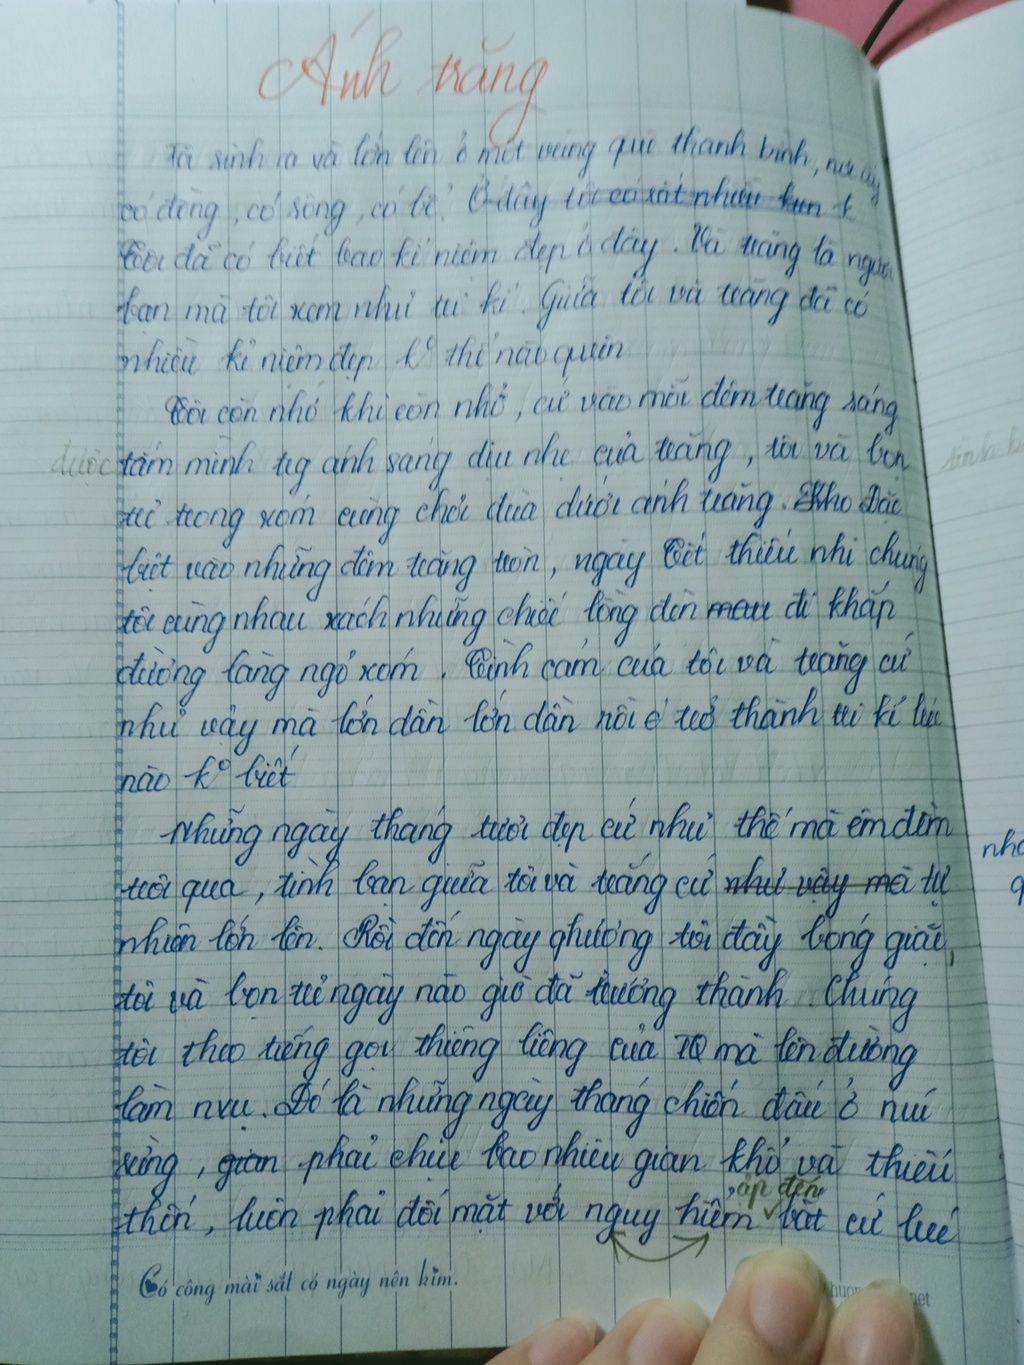 Ánh trăng
Tôi sinh ra và lớn lên ở một vùng quê thanh bình, nơi ấy
có đồng, có sông, có bể. Ở đây tôi có rất nhiều k
Tôi đã có biết bao kỉ niệm đẹp ở đây. Và trăng là người
bạn mà tôi xem như tri kỉ. Giữa tôi và trăng đã có
nhiều kỉ niệm đẹp k° thể nào quên
Tôi còn nhớ khi còn nhỏ, cứ vào mỗi đêm trăng sáng
được tắm mình trg ánh sáng dịu nhẹ của trăng, tôi và bọn
trẻ trong xóm cùng chơi đùa dưới ánh trăng. Đặc
biệt vào những đêm trăng tròn, ngày Tết thiếu nhi chúng
tôi cùng nhau xách những chiếc lồng đèn đi khắp
đường làng ngõ xóm. Tình cảm của tôi và trăng cứ
như vậy mà lớn dần lớn dần rồi trở thành tri kỉ lúc
nào k° biết
Những ngày tháng tươi đẹp cứ như thế mà êm đềm
trôi qua, tình bạn giữa tôi và trăng cứ như vậy mà tự
nhiên lớn lên. Rồi đến ngày qhương tôi đầy bóng giặc,
tôi và bọn trẻ ngày nào giờ đã trưởng thành. Chúng
tôi theo tiếng gọi thiêng liêng của TQ mà lên đường
làm nvụ. Đó là những ngày tháng chiến đấu ở núi
rừng, gian phải chịu bao nhiêu gian khổ và thiếu
ập đến
thốn, luôn phải đối mặt với nguy hiểm bất cứ lúc
Có công mài sắt có ngày nên kim.